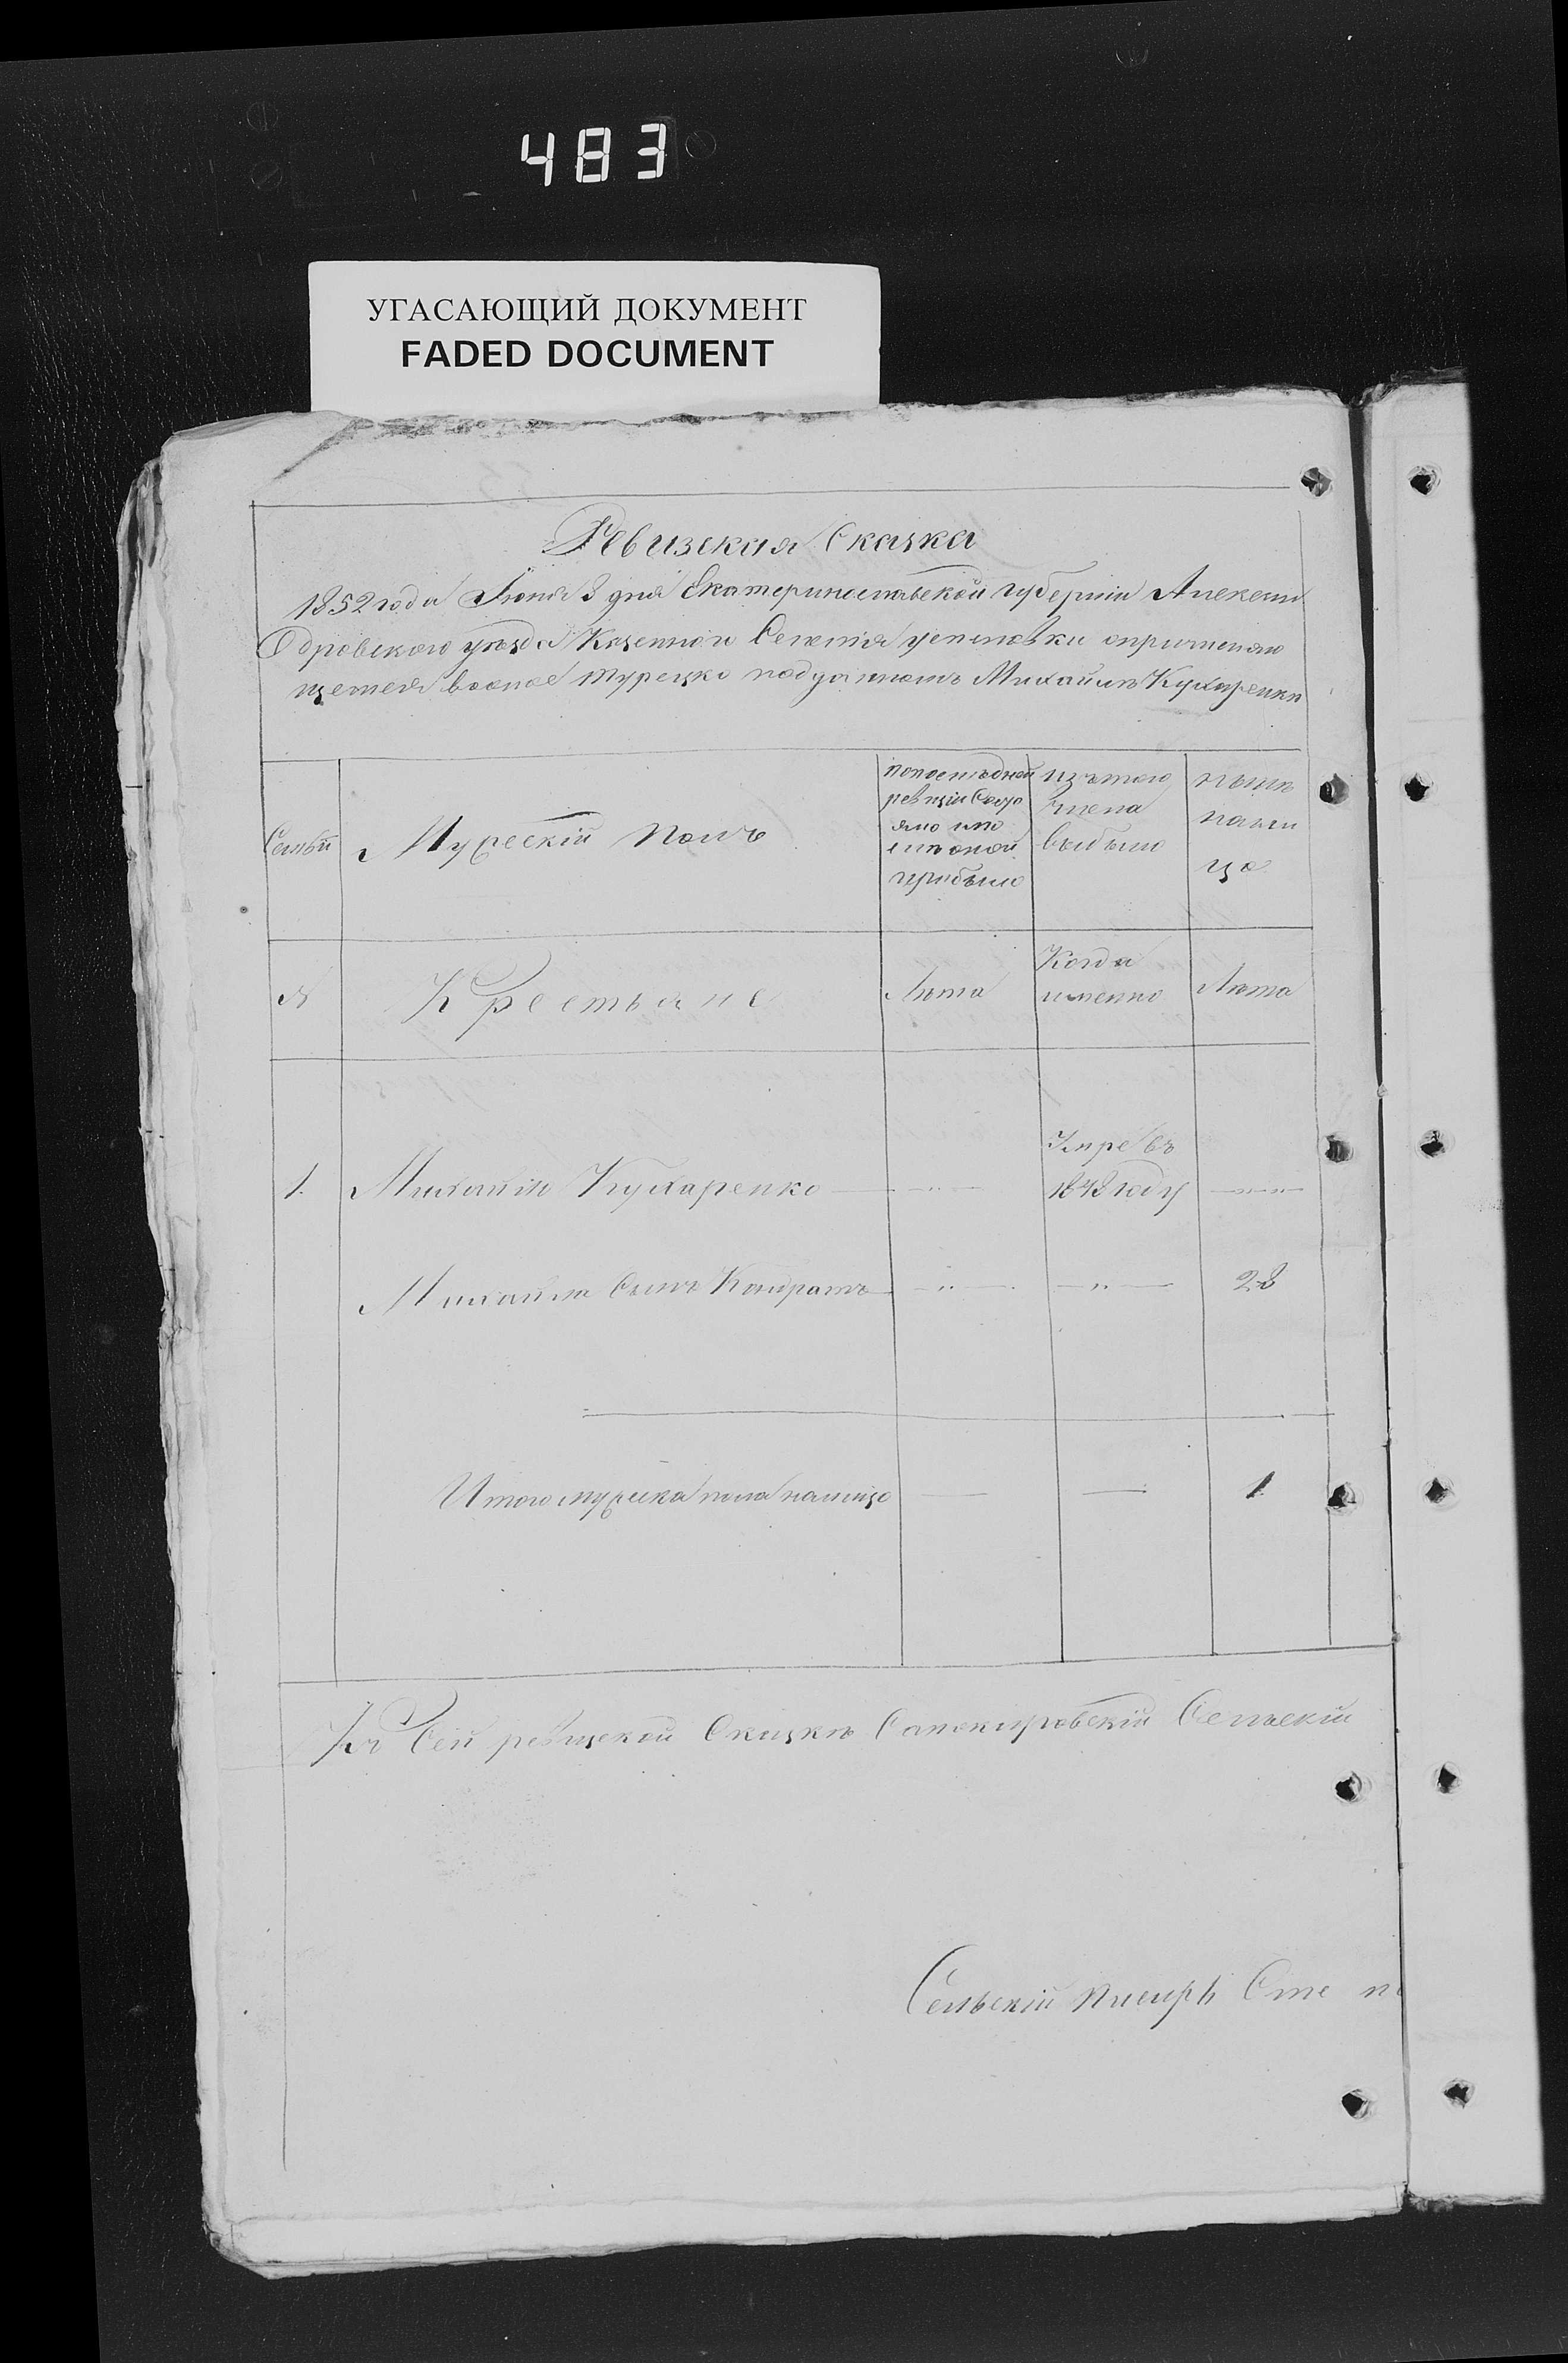 483
УГАСАЮЩИЙ ДОКУМЕНТ
FADED DOCUMENT
Ревизская Сказка
1852 года Июня 3 дня Екатеринославской губернiи Алексан
Дровского уезда Казенного Селенiя
Турецко Михаилъ Кухаренко
Семьи
Мужескiй Полъ
по последней
ревизiи Состо
яло или
после оной
прибыло
изъ того
числа
выбыло
ныне
нали
цо
№
Крестьяне
Лета
Когда
именно
Лета
1.
Михаилъ Кухаренко
Умре въ
1848 году
Михайла Сынъ Кондратъ
28
Итого мужеска пола налицо
1
Къ Сей ревизской Сказке Сельскiй
Сельскiй Писарь Сте